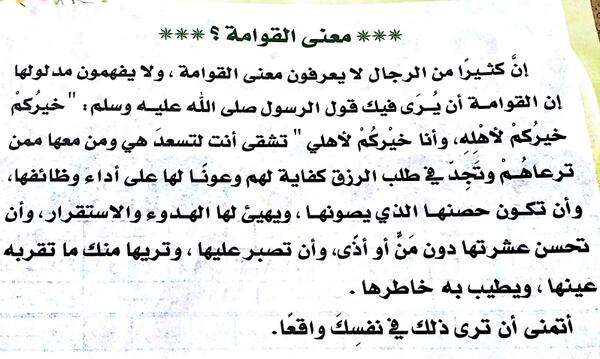 *** معنى القوامة ؟ ***
إنَّ كثيرًا من الرجال لا يعرفون معنى القوامة ، ولا يفهمون مدلولها
إن القوامة أن يُرَى فيك قول الرسول صلى الله عليه وسلم : " خيرُكمْ
خيرُكمْ لأهْلِهِ، وأنا خيْركُمْ لأهلي " تشقى أنت لتسعدَ هي ومن معها ممن
ترعاهُمْ وتَجِدّ في طلب الرزق كفاية لهم وعونًا لها على أداء وظائفها،
وأن تكون حصنها الذي يصونها ، ويهيئ لها الهدوء والاستقرار، وأن
تحسن عشرتها دون مَنٍّ أو أذًى، وأن تصبر عليها ، وتريها منك ما تقربه
عينها ، ويطيب به خاطرها .
أتمنى أن ترى ذلك في نفسِكَ واقعًا.